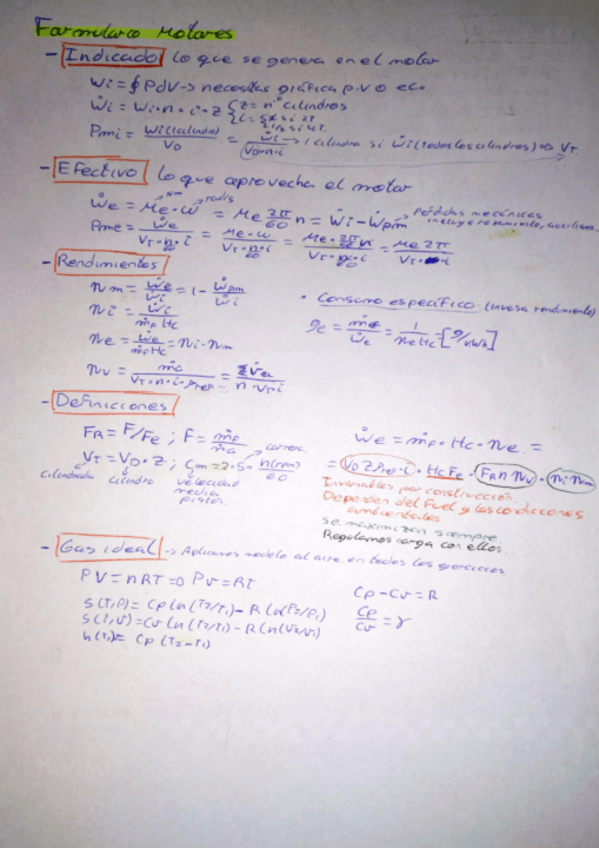 Formulario Motores
- Indicado lo que se genera en el motor
Wi = ∮PdV -> necesitas gráfica p-V o ec.
Ẇi = Wi · n · i · z { z = nº cilindros
{ i =
Pmi = Wi (1 cilindro) / VD = Ẇi / VD·n·i -> 1 cilindro si Ẇi (todos los cilindros) => VT
- Efectivo lo que aprovecha el motor
Nm rad/s
Ẇe = Me · ω = Me 2π/60 n = Ẇi - Ẇpm Pérdidas mecánicas
incluye rozamiento, auxiliares.
Pme = Ẇe / VT · n/60 · i = Me · ω / VT · n/60 · i = Me · 2π/60 n / VT · n/60 · i = Me 2π / VT · i
- Rendimientos
ηm = Ẇe / Ẇi = 1 - Ẇpm / Ẇi
ηi = Ẇi / ṁf Hc
ηe = Ẇe / ṁf Hc = ηi · ηm
ηv = ṁa / VT · n · i · ρref = V̇a / n · VT · i
• Consumo específico: (inversa rendimiento)
ge = ṁf / Ẇe = 1 / ηe Hc = [g/kWh]
- Definiciones
FR = F/Fe ; F = ṁf / ṁa
carrera
VT = VD · z ; cm = 2 · S · n(rpm) / 60
cilindrada cilindro velocidad
media
pistón.
Ẇe = ṁf · Hc · ηe =
= VD z ρref · i · Hc Fe · FR n ηv · ηi ηm
Invariables por construcción.
Dependen del fuel y las condiciones
ambientales
se maximizan siempre
Regulamos carga con ellos.
- Gas ideal -> Aplicamos modelo al aire en todos los ejercicios
PV = nRT => Pv = RT
s(T,P) = Cp ln(T2/T1) - R ln(P2/P1)
s(T,v) = Cv ln(T2/T1) - R ln(V2/V1)
h(T) = Cp (T2-T1)
Cp - Cv = R
Cp / Cv = γ